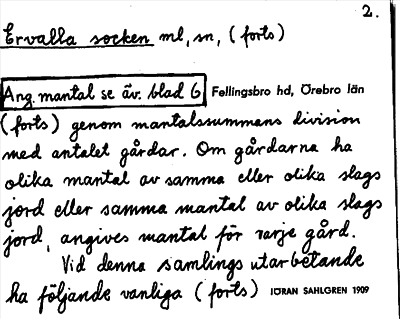 2.
Ervalla socken ml, sn, (forts)
Ang. mantal se äv. blad 6 Fellingsbro hd, Örebro län
(forts) genom mantalssummans division
med antalet gårdar. Om gårdarna ha
olika mantal av samma eller olika slags
jord eller samma mantal av olika slags
jord, angives mantal för varje gård.
Vid denna samlings utarbetande
ha följande vanliga (forts) JÖRAN SAHLGREN 1909